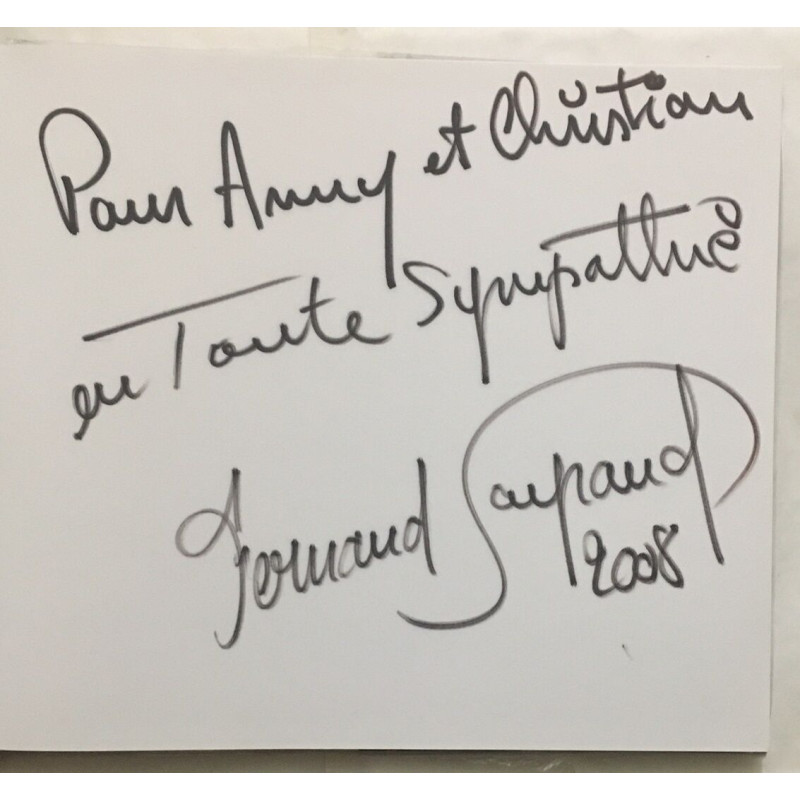 Pour Anny et Christian
en Toute Sympathie
Fernand
2008